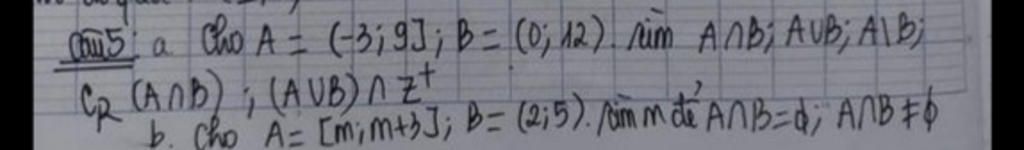 Câu 5: a. Cho A = (-3; 9]; B = (0; 12). Tìm A∩B; A∪B; A\B;
C_R (A∩B); (A∪B) ∩ Z⁺
b. Cho A = [m; m+3]; B = (2; 5). Tìm m để A∩B = ϕ; A∩B ≠ ϕ